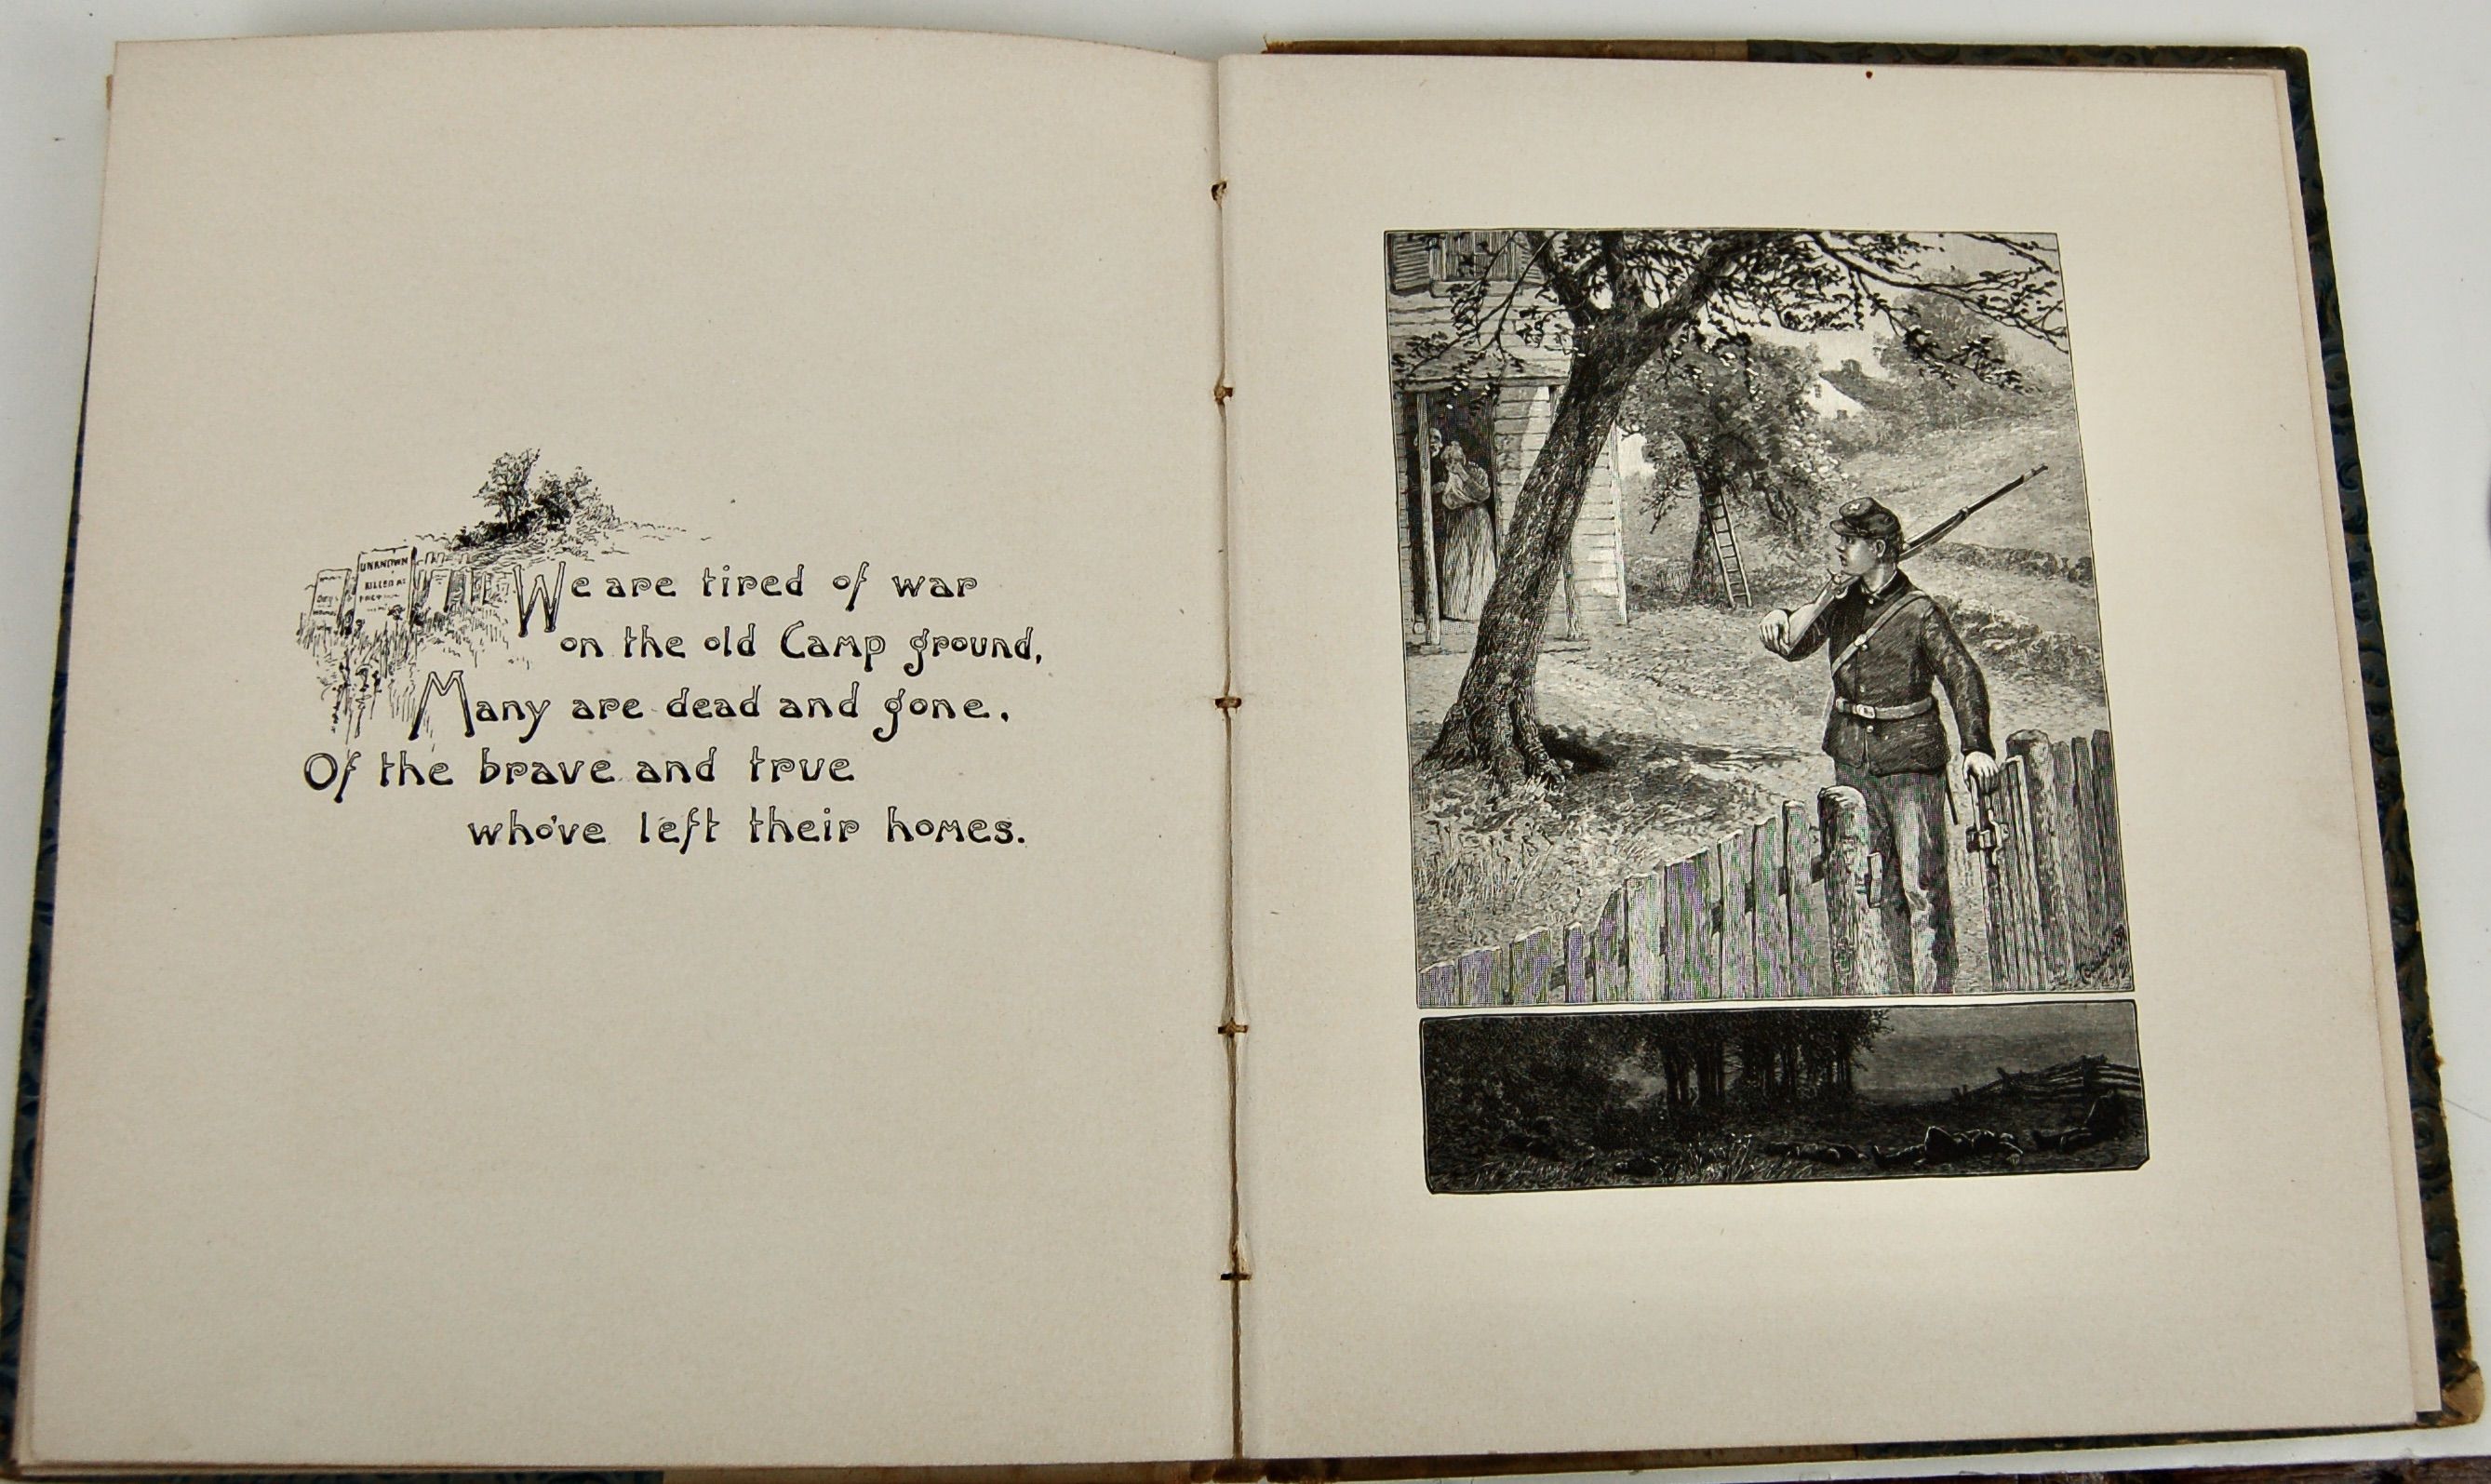 UNKNOWN
KILLED AT
We are tired of war
on the old Camp ground,
Many are dead and gone,
Of the brave and true
who've left their homes.